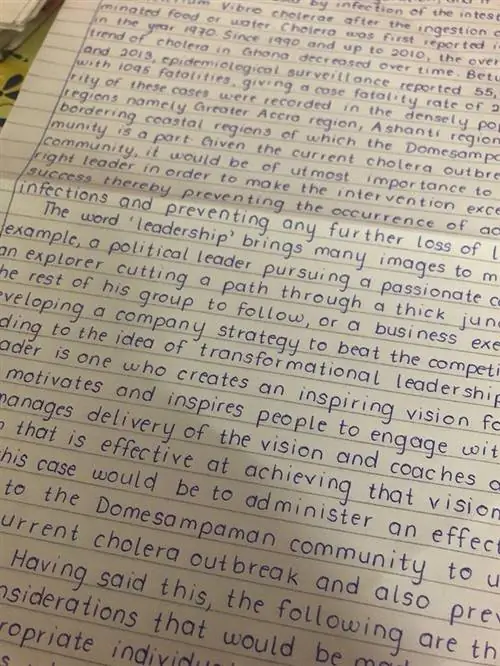 by infection of the intes
minated food or water Cholera after the ingestion o
in the year 1970. Since 1990 and up to 2010, the over
trend of cholera in Ghana decreased over time. Betw
and 2013, epidemiological surveillance reported 55,
with 1095 fatalities, giving a case fatality rate of 2
rity of these cases were recorded in the densely po
regions namely Greater Accra region, Ashanti region
bordering coastal regions of which the Domesampa
munity is a part. Given the current cholera outbre
community, it would be of utmost importance to
right leader in order to make the intervention exce
success thereby preventing the occurrence of ad
infections and preventing any further loss of l
The word 'leadership' brings many images to m
example, a political leader pursuing a passionate c
an explorer cutting a path through a thick jun
he rest of his group to follow, or a business exe
veloping a company strategy to beat the competi
ding to the idea of transformational leadership
ader is one who creates an inspiring vision fo
motivates and inspires people to engage wit
manages delivery of the vision and coaches a
that is effective at achieving that vision
his case would be to administer an effect
to the Domesampaman community to u
urrent cholera outbreak and also prev
Having said this, the following are th
nsiderations that would be ma
ropriate individu